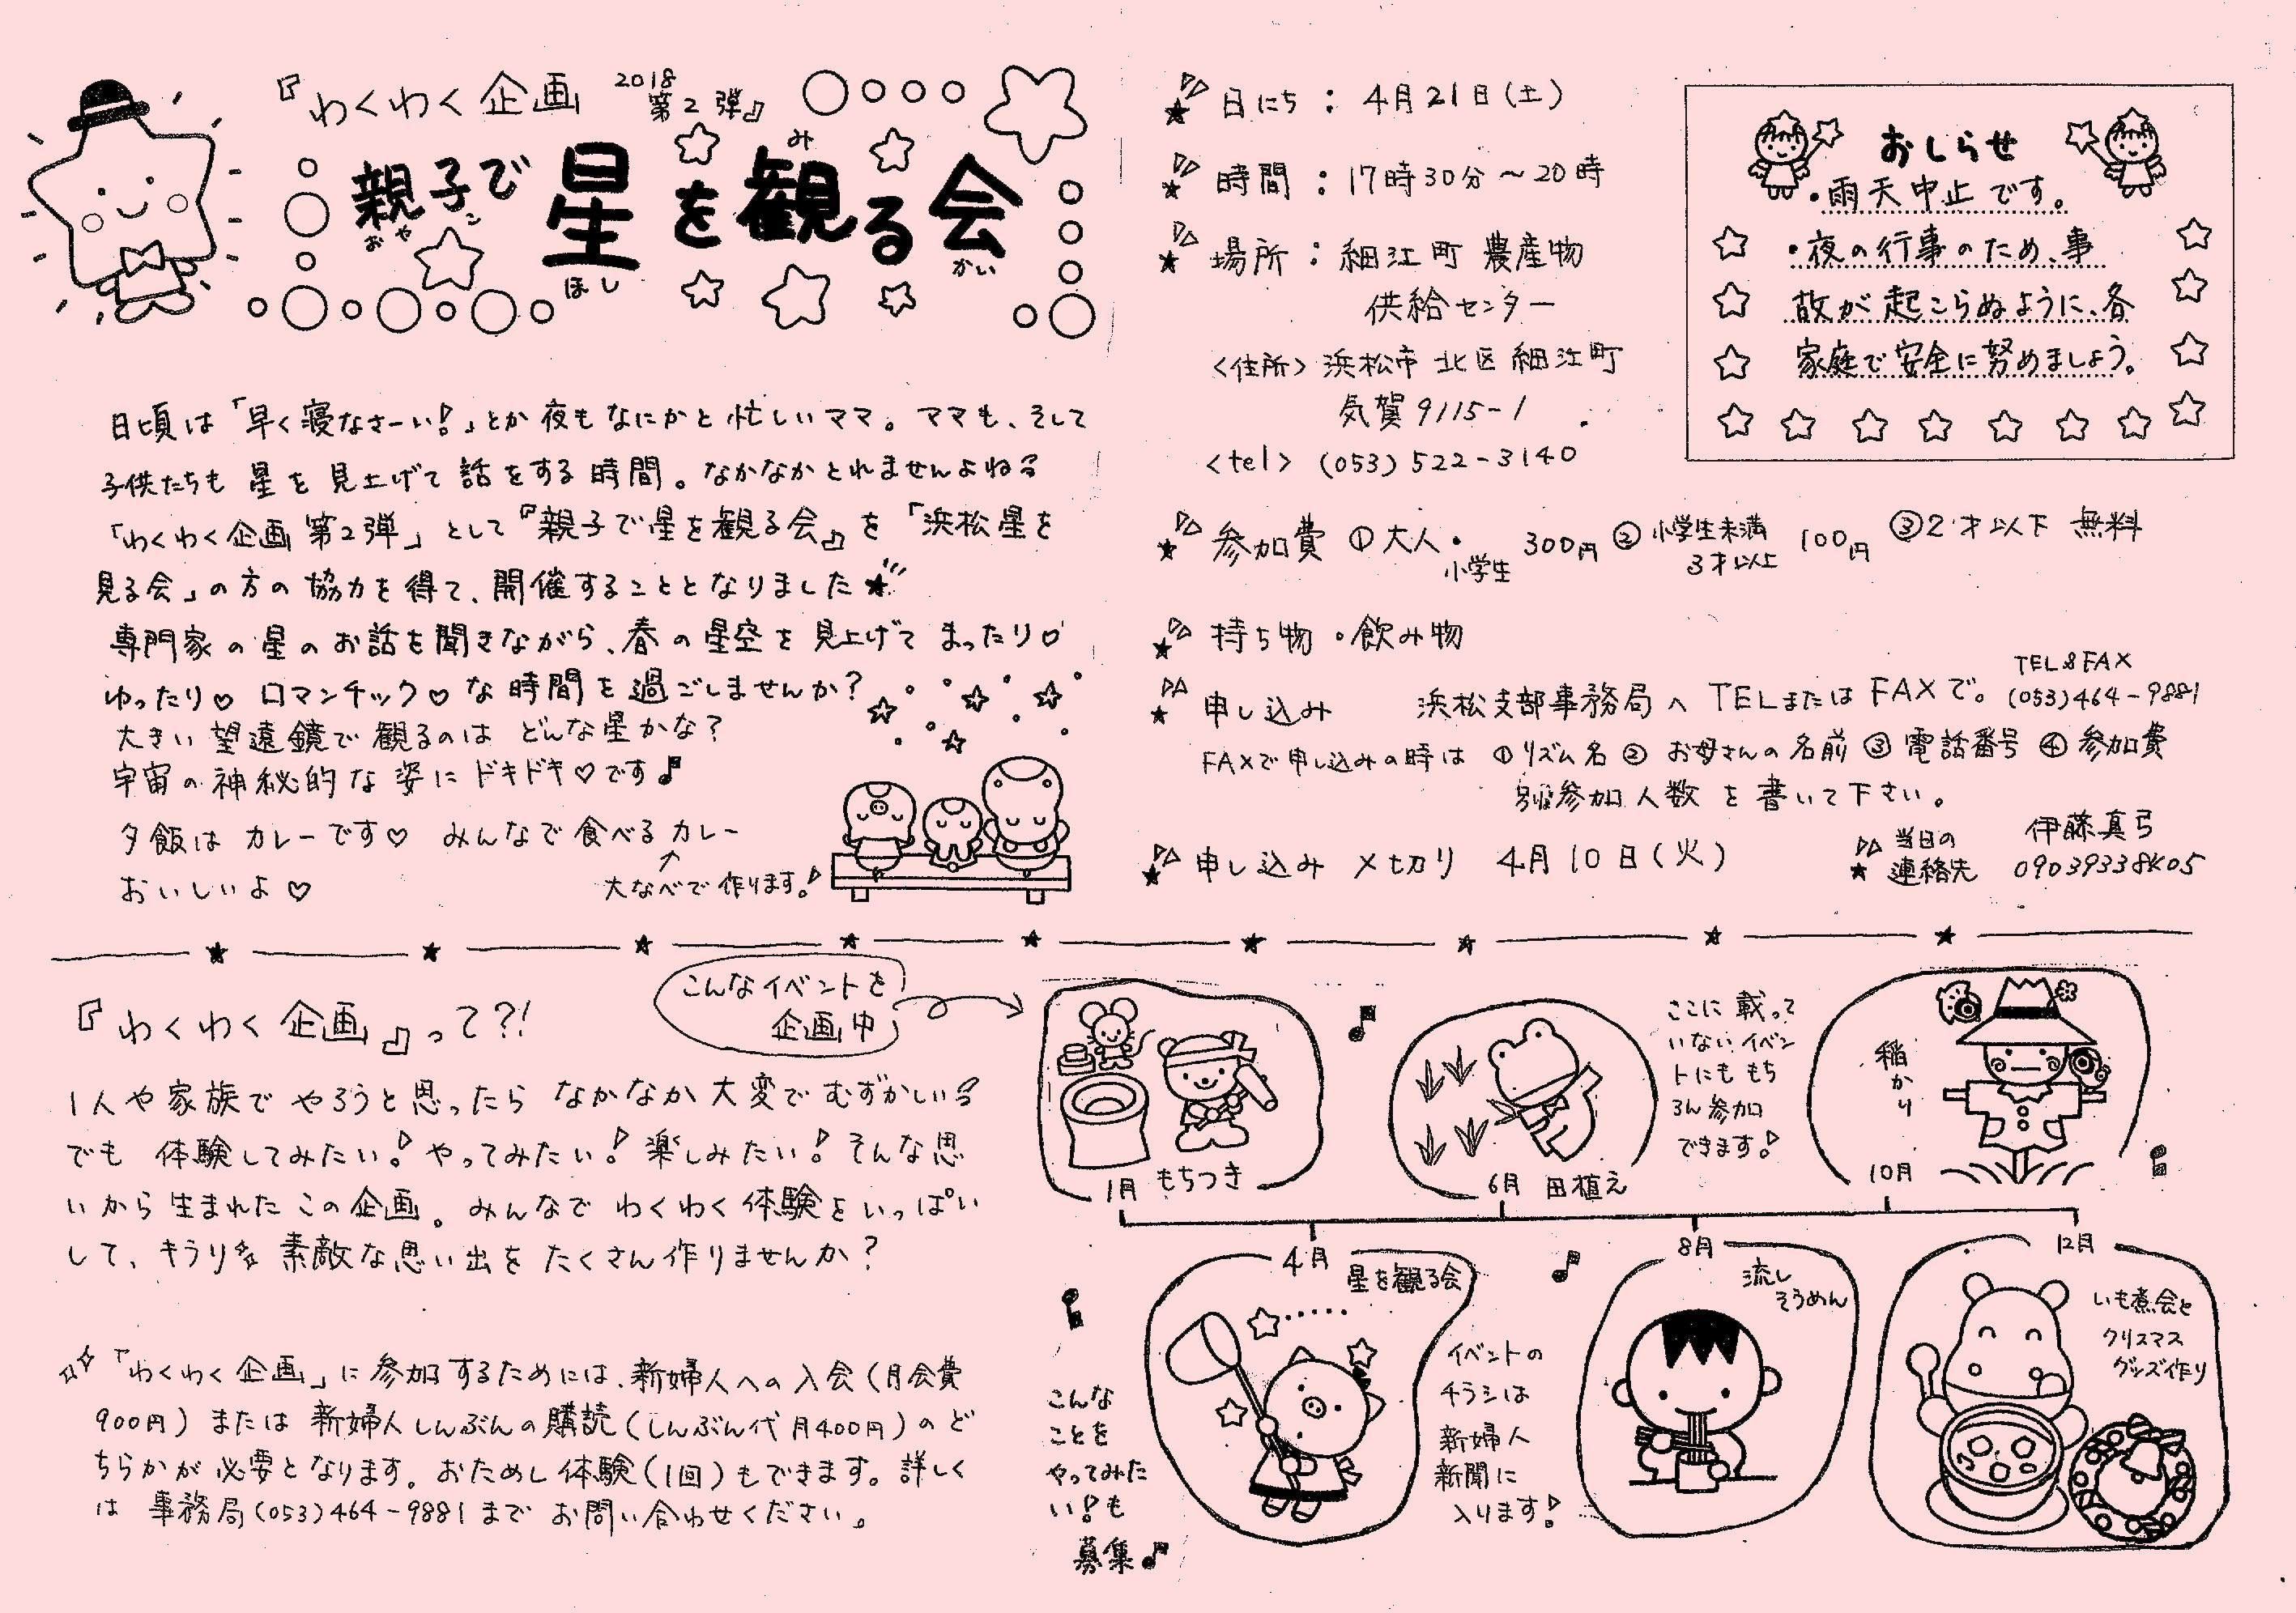 『わくわく企画 2018 第2弾』
親子で星を観る会
おやこ ほし み かい
日頃は「早く寝なさーい!」とか夜もなにかと忙しいママ。ママも、そして
子供たちも星を見上げて話をする時間。なかなかとれませんよね
「わくわく企画第2弾」として『親子で星を観る会』を「浜松星を
見る会」の方の協力を得て、開催することとなりました★
専門家の星のお話を聞きながら、春の星空を見上げてまったり♡
ゆったり♡ ロマンチック♡な時間を過ごしませんか?
大きい望遠鏡で観るのはどんな星かな?
宇宙の神秘的な姿にドキドキ♡です♪
夕飯はカレーです♡ みんなで食べるカレー
おいしいよ♡
大なべで作ります!
★日にち:4月21日(土)
★時間:17時30分~20時
★場所:細江町 農産物
供給センター
<住所>浜松市北区細江町
気賀9115-1
<tel> (053)522-3140
おしらせ
・雨天中止です。
・夜の行事のため、事
故が起こらぬように、各
家庭で安全に努めましょう。
★参加費 ①大人・小学生 300円 ②小学生未満 3才以上 100円 ③2才以下 無料
★持ち物・飲み物
★申し込み 浜松支部事務局へTELまたはFAXで。TEL&FAX (053)464-9881
FAXで申し込みの時は ①リズム名 ②お母さんの名前 ③電話番号 ④参加費
別参加人数を書いて下さい。
★申し込み〆切り 4月10日(火)
★当日の連絡先 伊藤真弓
『わくわく企画』って?!
1人や家族でやろうと思ったらなかなか大変でむずかしい
でも 体験してみたい!やってみたい!楽しみたい!そんな思
いから生まれたこの企画。みんなでわくわく体験をいっぱい
して、キラリ 素敵な思い出をたくさん作りませんか?
「わくわく企画」に参加するためには、新婦人への入会(月会費
900円)または新婦人しんぶんの購読(しんぶん代月400円)のど
ちらかが必要となります。おためし体験(1回)もできます。詳しく
は 事務局(053)464-9881までお問い合わせください。
こんなイベントを
企画中
1月 もちつき
6月 田植え
ここに載って
いないイベン
トにももち
ろん参加
できます!
稲かり
10月
4月 星を観る会
8月 流し
そうめん
12月
いも煮会と
クリスマス
グッズ作り
こんな
ことを
やってみた
い!も
募集♪
イベントの
チラシは
新婦人
新聞に
入ります!